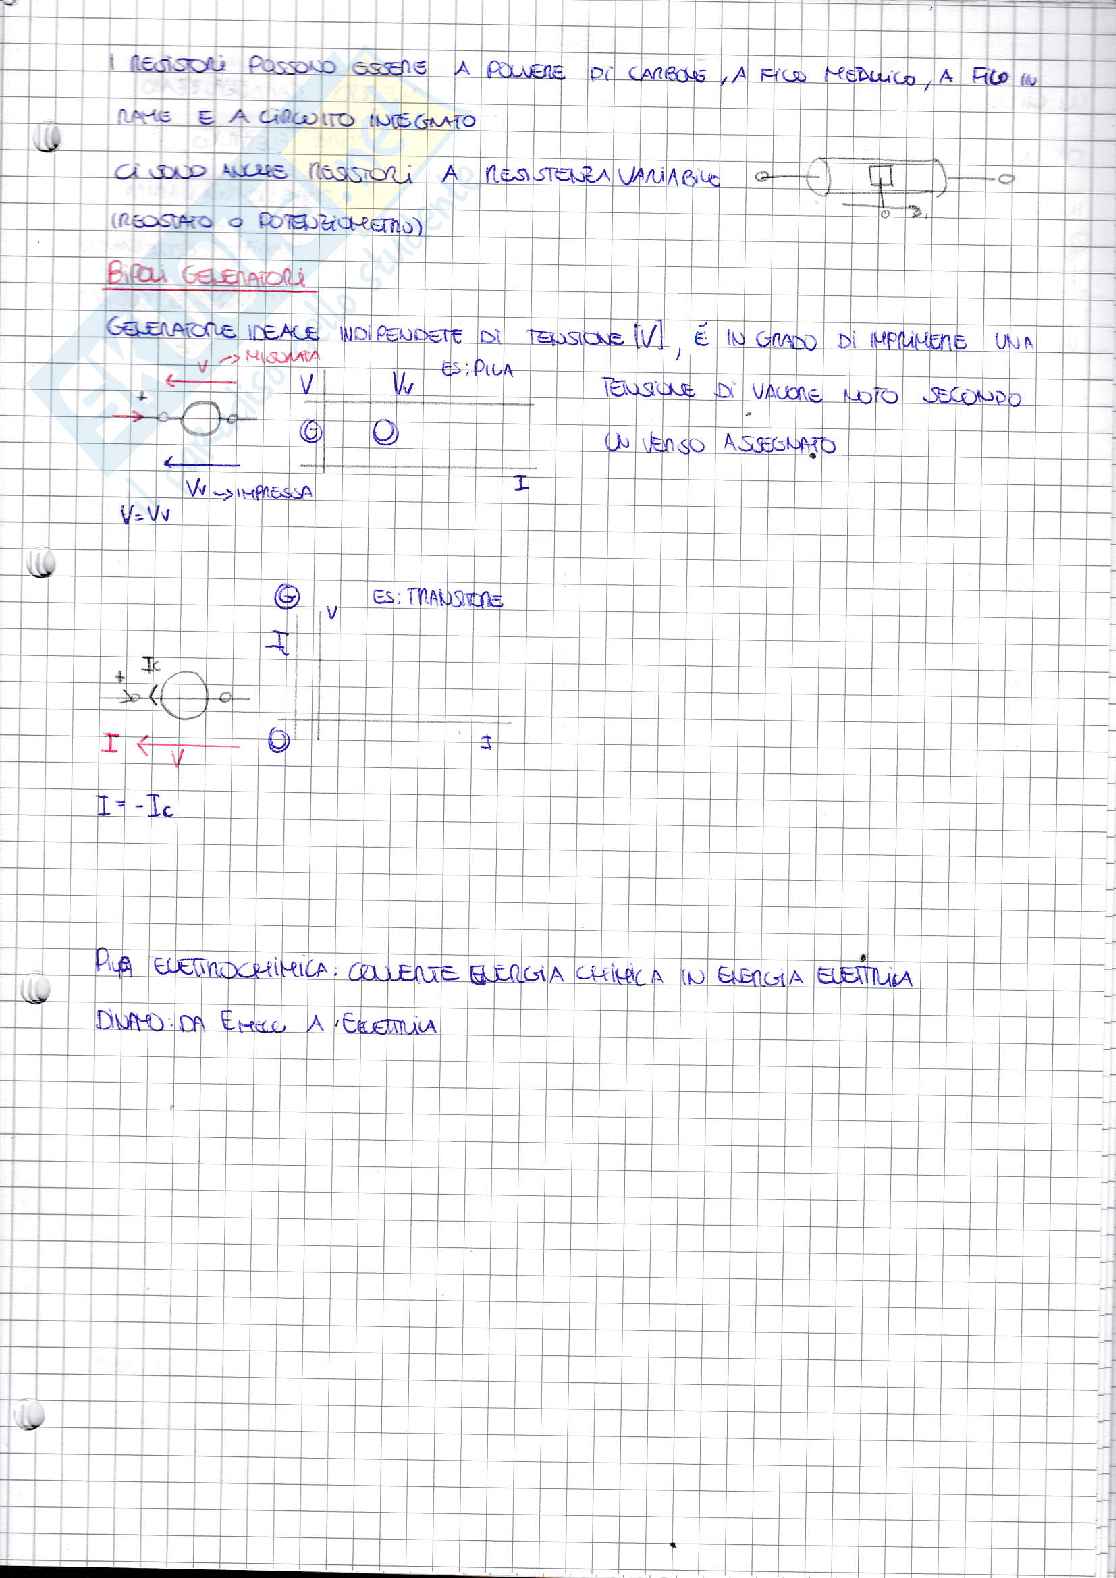 I RESISTORI POSSONO ESSERE A POLVERE DI CARBONE, A FILO METALLICO, A FILO IN
RAME E A CIRCUITO INTEGRATO
CI SONO ANCHE RESISTORI A RESISTENZA VARIABILE
(REOSTATO O POTENZIOMETRO)
BIPOLI GENERATORI
GENERATORE IDEALE INDIPENDETE DI TENSIONE [V], É IN GRADO DI IMPRIMERE UNA
TENSIONE DI VALORE NOTO SECONDO
UN VERSO ASSEGNATO
V → MISURATA
ES: PILA
V
Vv
+
G
O
I
Vv → IMPRESSA
V = Vv
G
ES: TRANSITORE
V
Ic
+
I
V
O
I
I = -Ic
PILA ELETTROCHIMICA: CONVERTE ENERGIA CHIMICA IN ENERGIA ELETTRICA
DINAMO: DA EMECC A ELETTRICA